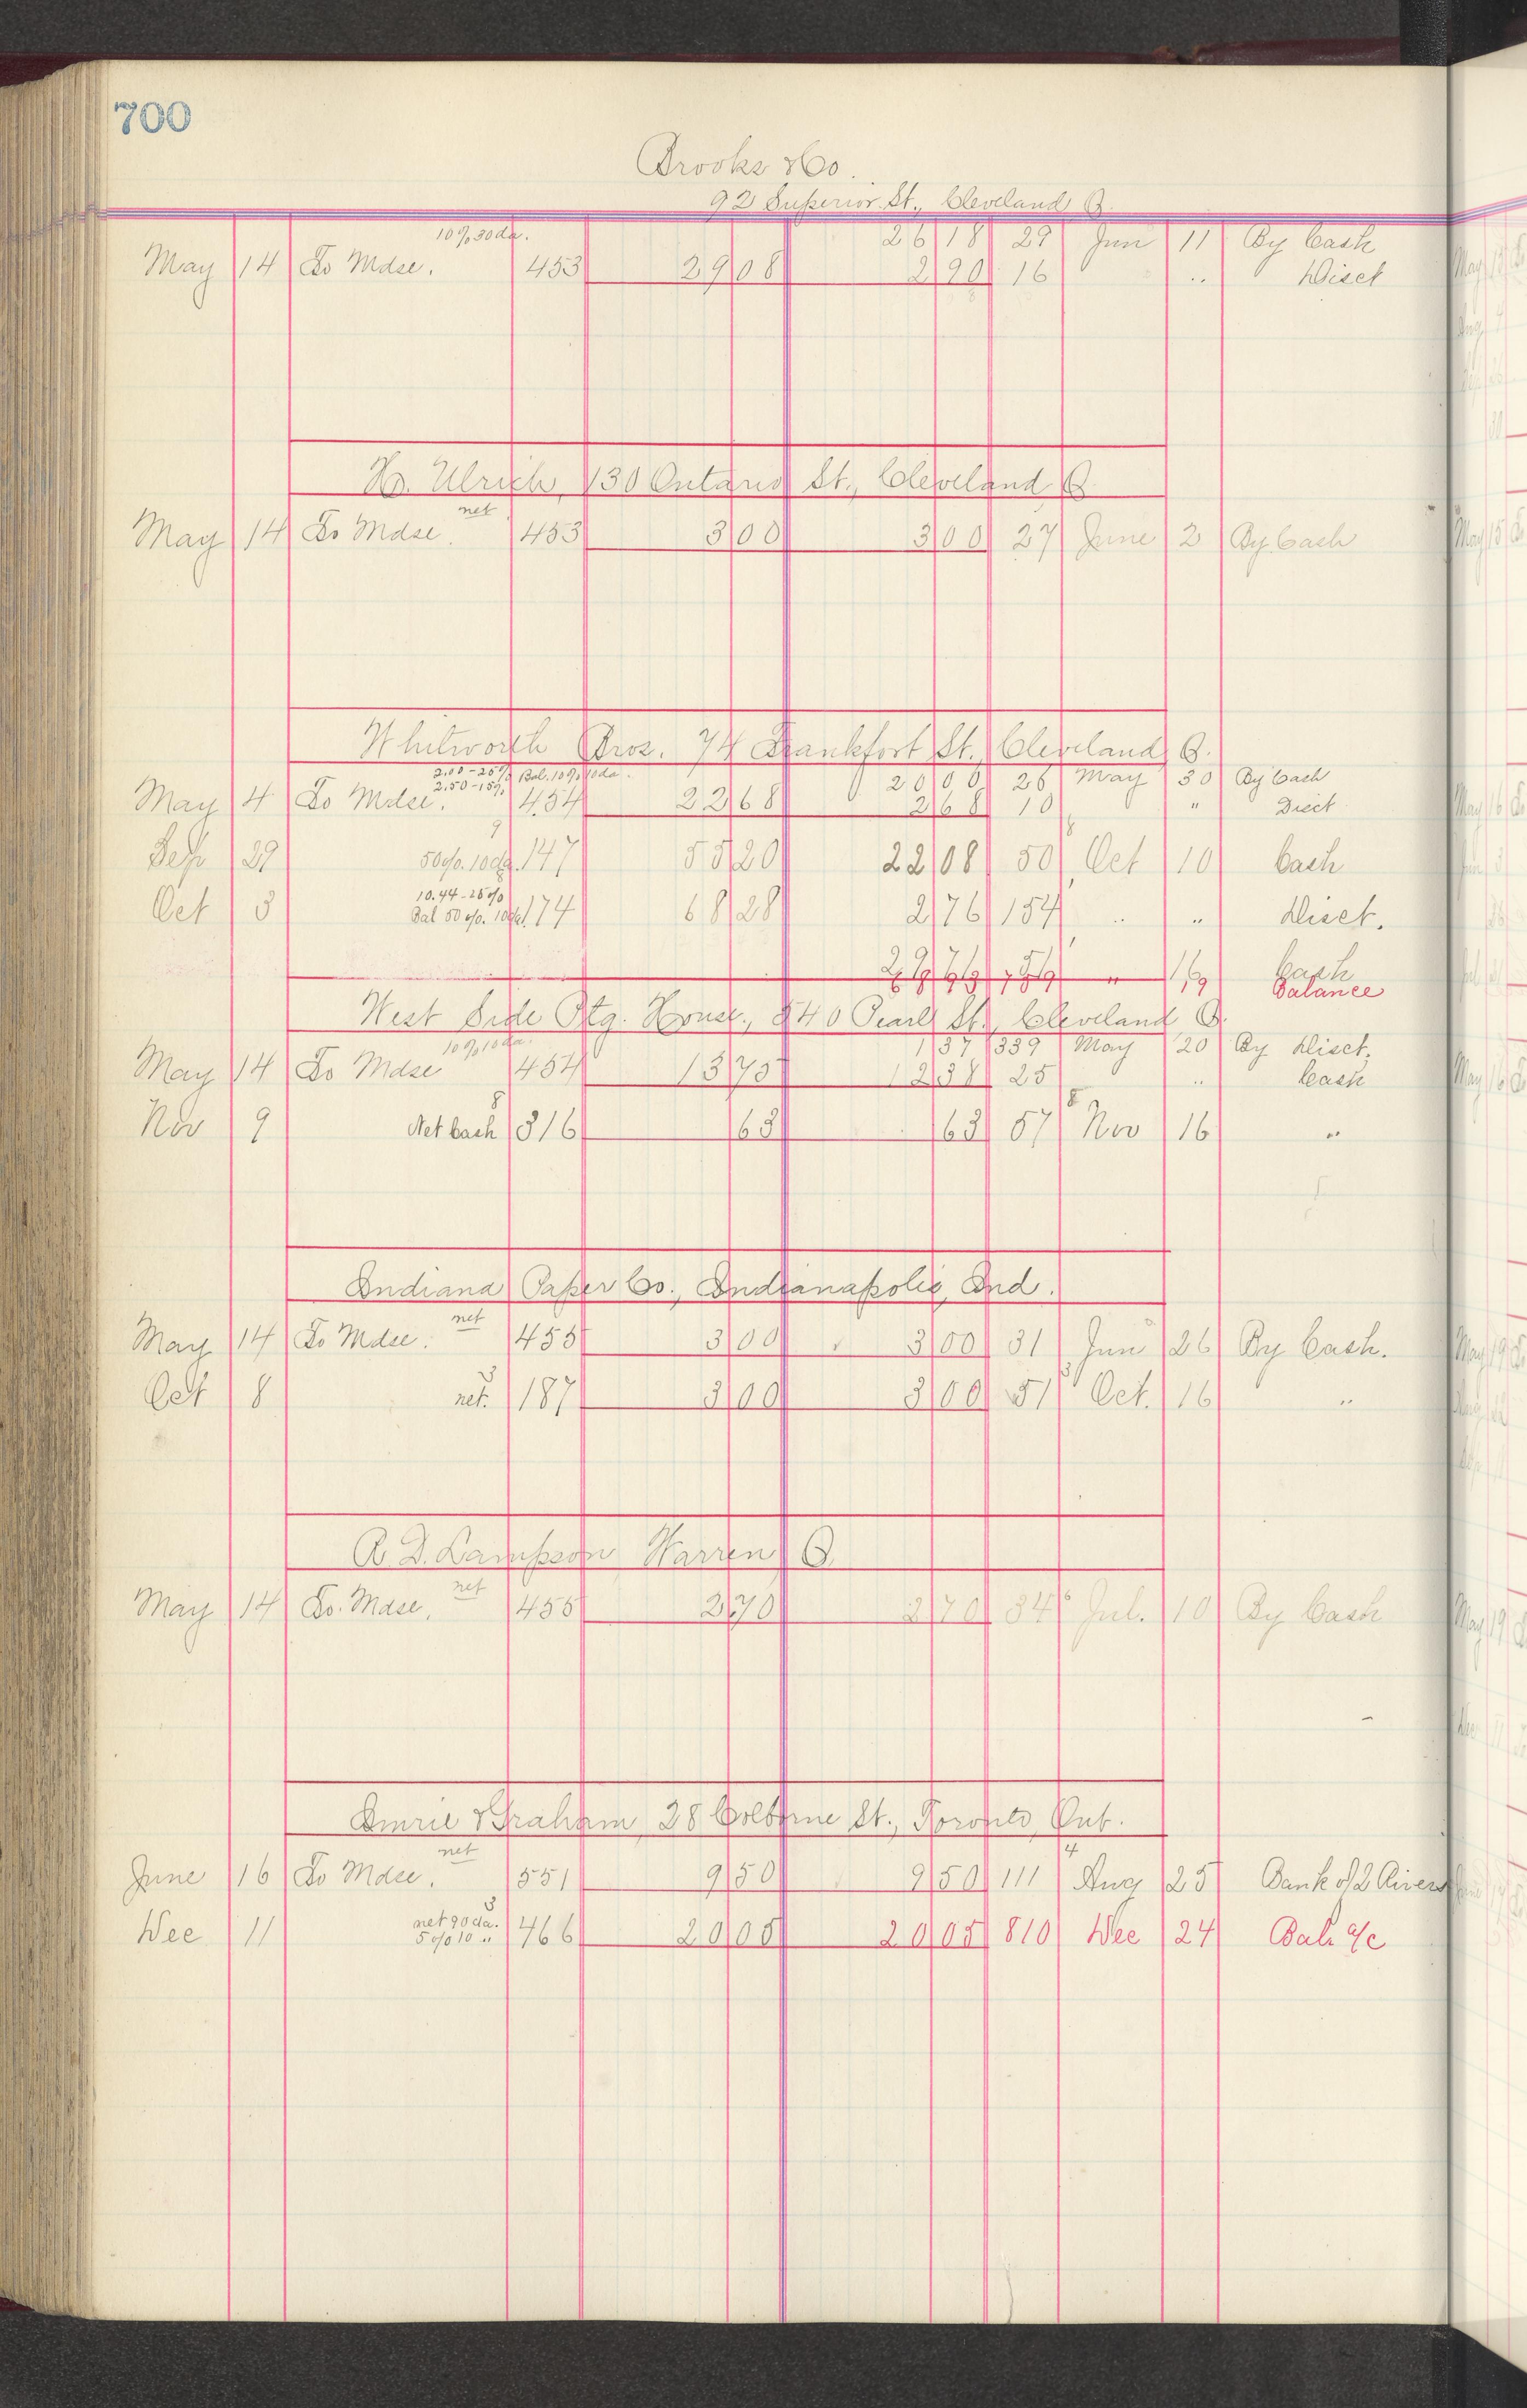 700
Brooks & Co.
92 Superior St., Cleveland O.
10% 30 da. 26 18 29 Jun 11 By Cash
May 14 To Mdse. 453 29 08 2 90 16 .. Disct
H. Ulrich, 130 Ontario St., Cleveland O.
net
May 14 To Mdse. 453 3 00 3 00 27 June 2 By Cash
Whitworth Bros. 74 Frankfort St., Cleveland O.
2.00-25% Bal. 10% 10 da. 20 00 26 May 30 By Cash
2.50-15%
May 4 To Mdse. 454 22 68 2 68 10 " Disct
9 8
Sep 29 50%. 10 da. 147 55 20 22 08 50 Oct 10 Cash
10.44-25%
Oct 3 Bal 50%. 10 da. 174 68 28 2 76 154 .. .. Disct.
" Cash
Balance
West Side Ptg. House, 840 Pearl St., Cleveland O.
10% 10 da. 1 37 339 May 20 By Disct.
May 14 To Mdse 454 13 75 12 38 25 .. Cash
8 8
Nov 9 Net Cash 316 63 63 57 Nov 16 "
Indiana Paper Co., Indianapolis, Ind.
net
May 14 To Mdse. 455 3 00 3 00 31 Jun 26 By Cash.
Oct 8 net. 187 3 00 3 00 51 Oct. 16 "
R. D. Lampson Warren O.
net
May 14 To Mdse. 455 2 70 2 70 34 Jul. 10 By Cash
Imrie & Graham, 28 Colborne St., Toronto, Ont.
net 4
June 16 To Mdse. 551 9 50 9 50 111 Aug 25 Bank of 2 Rivers
3
net 90 da.
Dec 11 5% 10 " 466 20 05 20 05 810 Dec 24 Bal. a/c